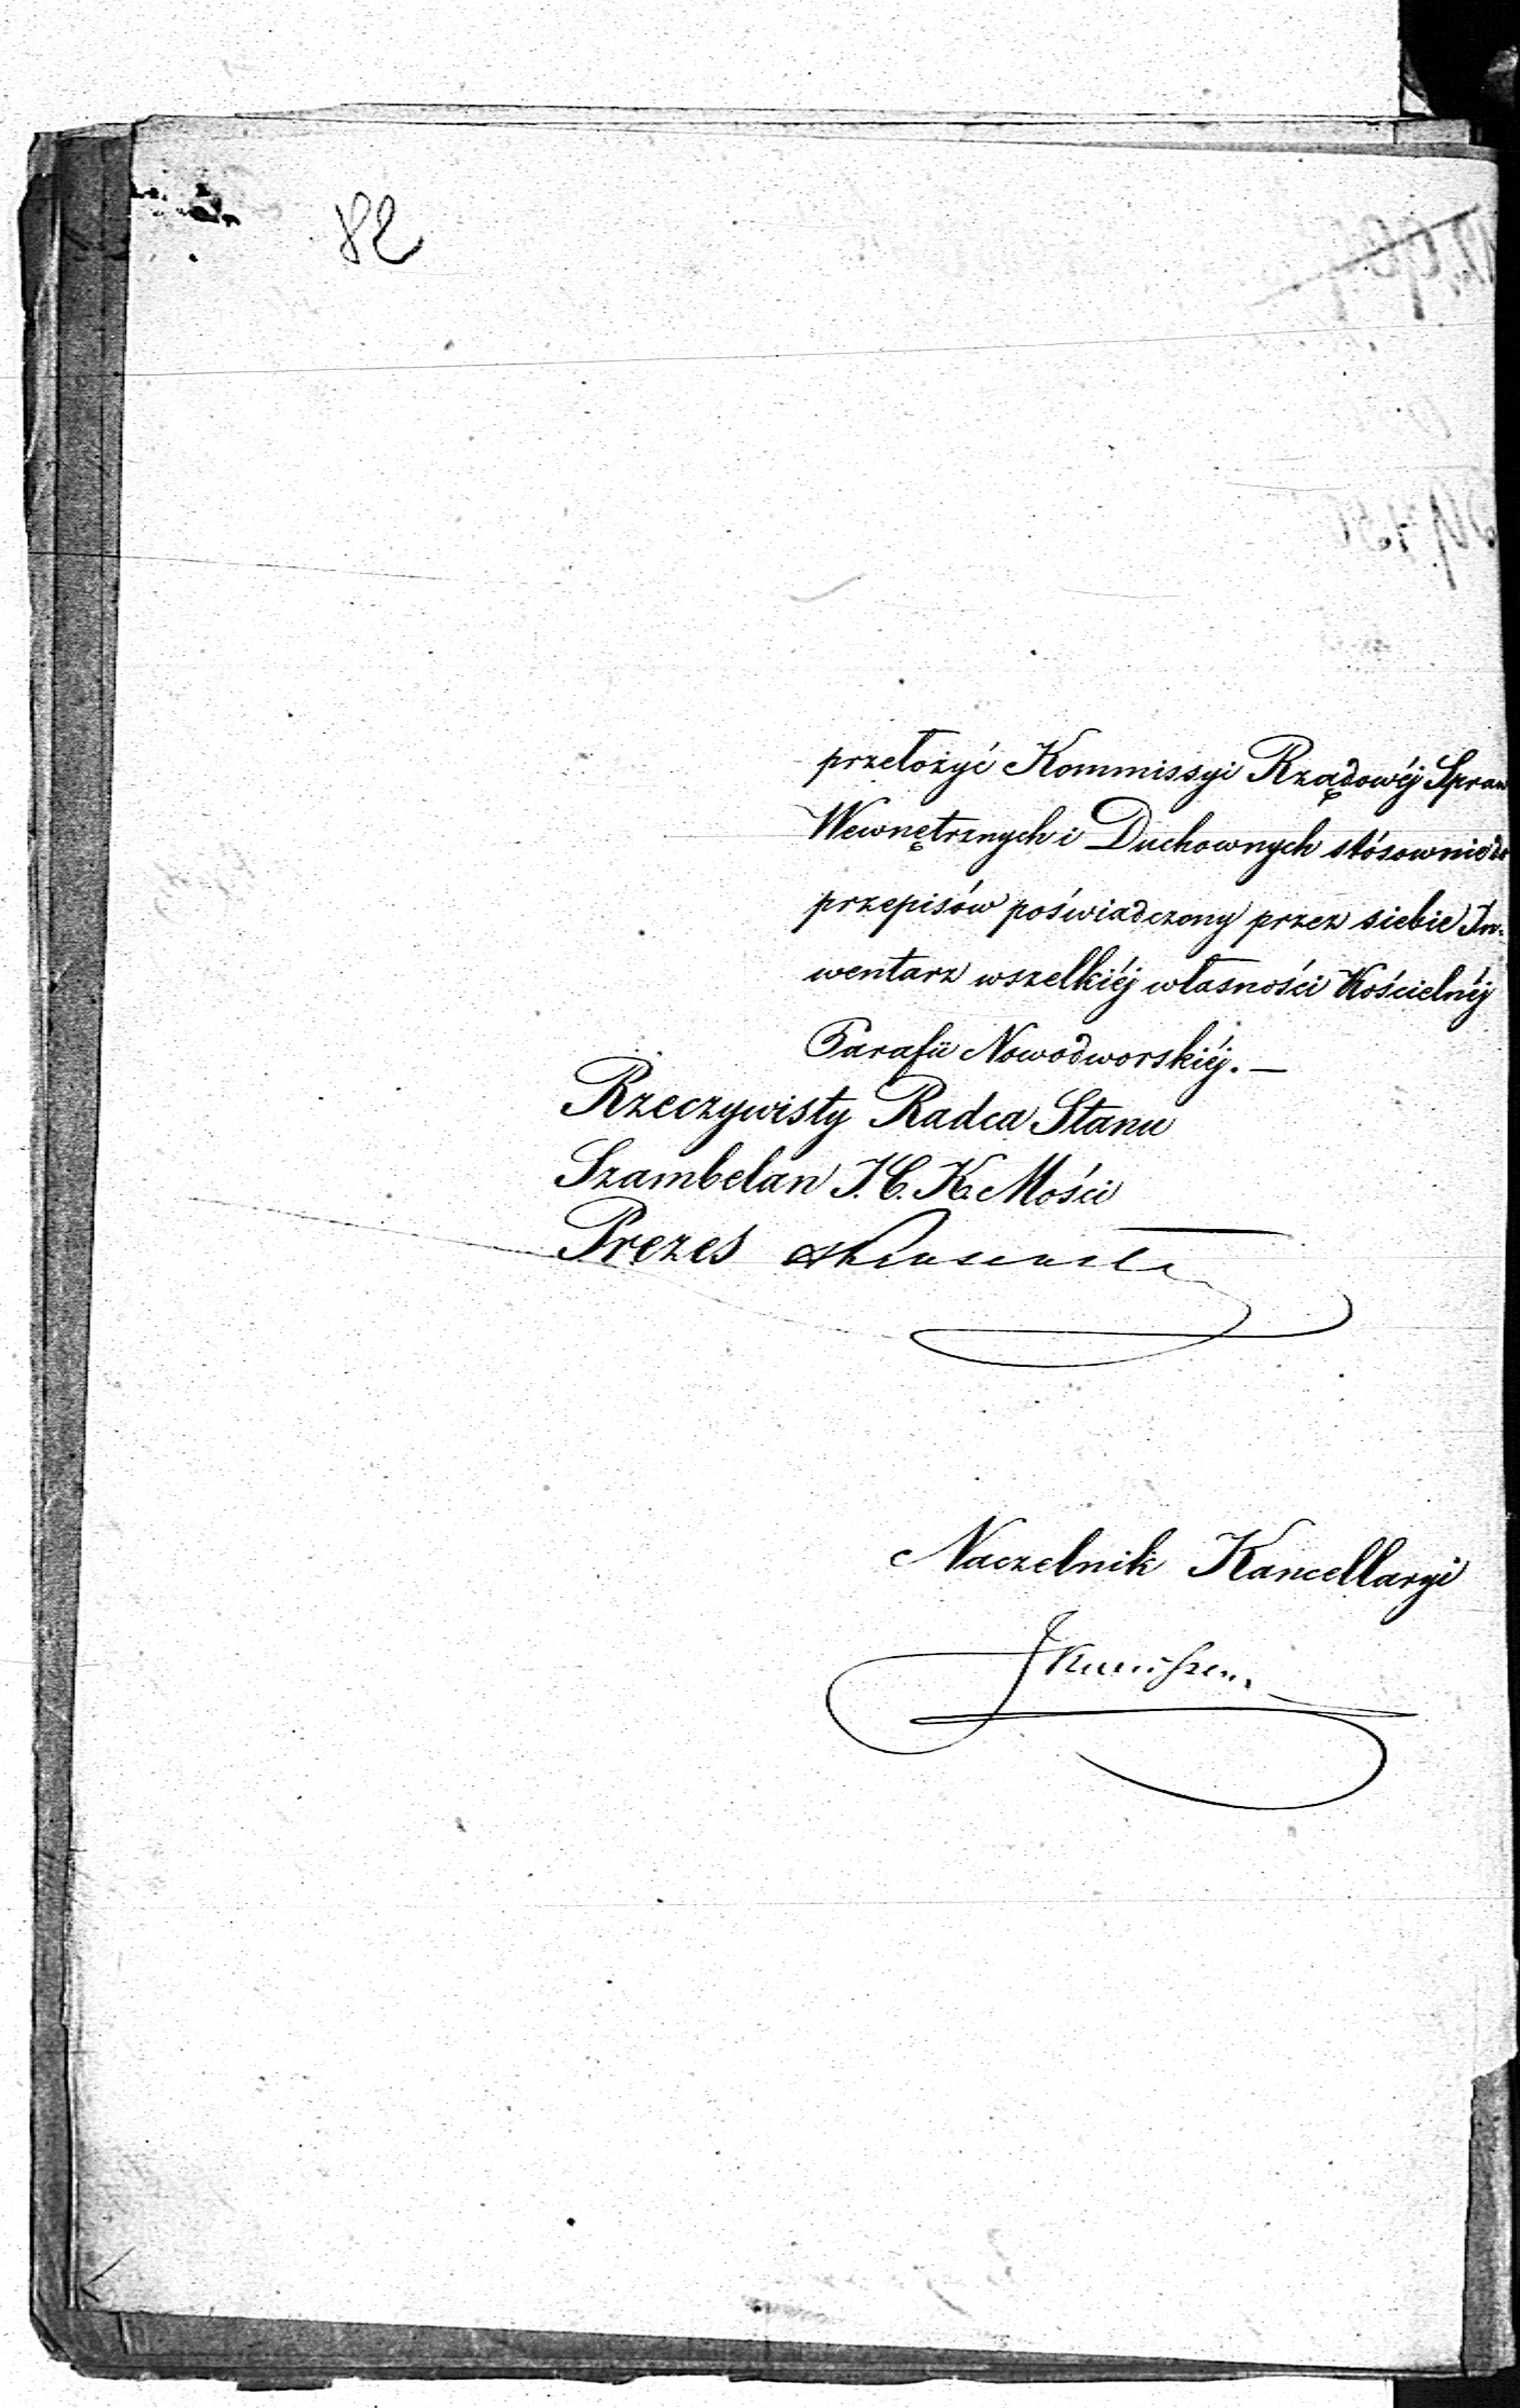 82
przełożyć Kommissyi Rządowéj Spraw
Wewnętrznych i Duchownych stósownie do
przepisów poświadczony przez siebie In-
wentarz wszelkiéj własności Kościelnéj
Parafii Nowodworskiéj. —
Rzeczywisty Radca Stanu
Szambelan J. C. K. Mości
Prezes
Naczelnik Kancellaryi